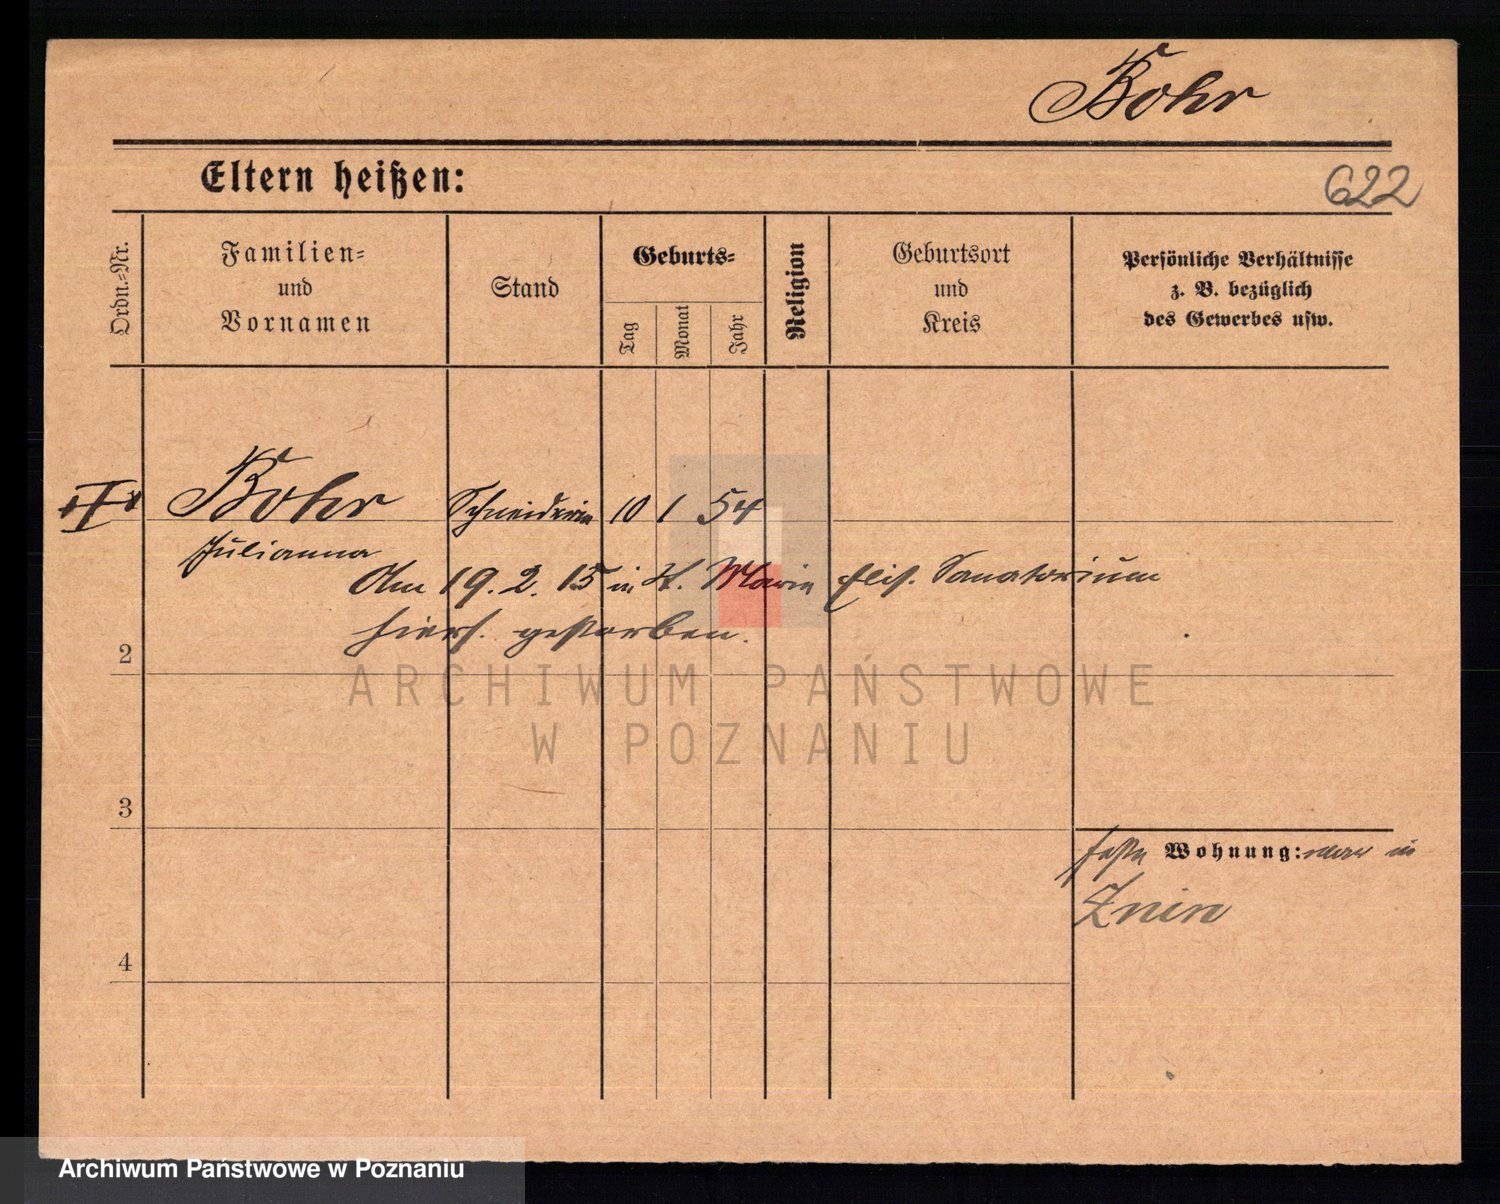 Bohr
Eltern heißen:
622
Ordn.=Nr.
Familien=
und
Vornamen
Stand
Geburts=
Tag
Monat
Jahr
Religion
Geburtsort
und
Kreis
Persönliche Verhältnisse
z. B. bezüglich
des Gewerbes usw.
Bohr Schneiderin 10 1 54
Julianna
Am 19. 2. 15 in St. Marie Elis. Sanatorium
hiers. gestorben.
2
3
feste Wohnung: war in
Znin
4
ARCHIWUM PAŃSTWOWE
W POZNANIU
Archiwum Państwowe w Poznaniu